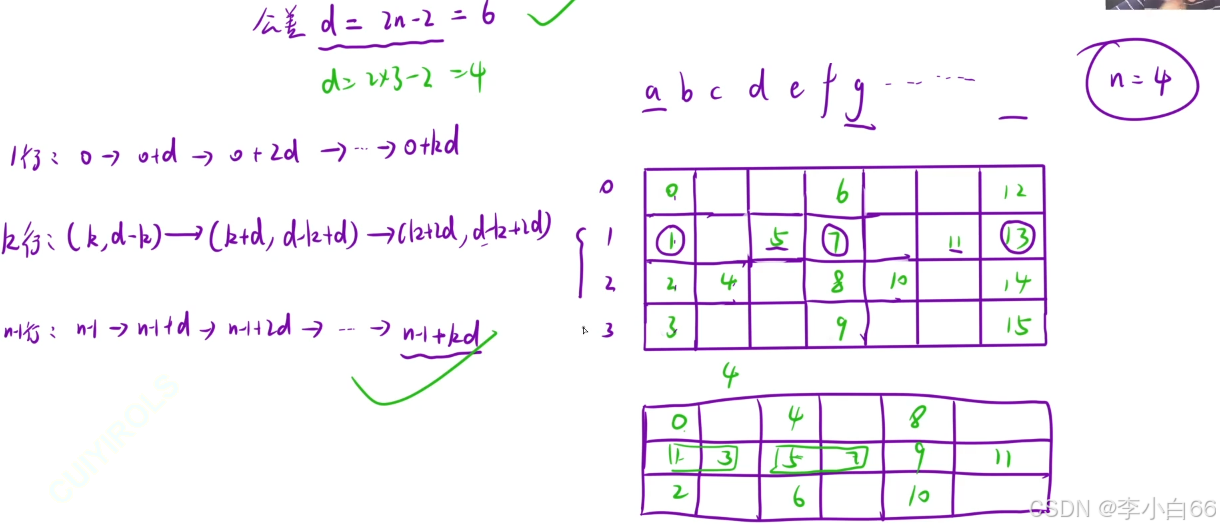 公差 d = 2n-2 = 6
d = 2×3-2 = 4
n = 4
a b c d e f g ...... 
1行: 0 → 0+d → 0+2d → ... → 0+kd
k行: (k, d-k) → (k+d, d-k+d) → (k+2d, d-k+2d)
n-1行: n-1 → n-1+d → n-1+2d → ... → n-1+kd
0 0 6 12
1 1 5 7 11 13
2 2 4 8 10 14
3 3 9 15
4
0 4 8
11 3 5 7 9 11
2 6 10
CUIYIROLS
CSDN @李小白66